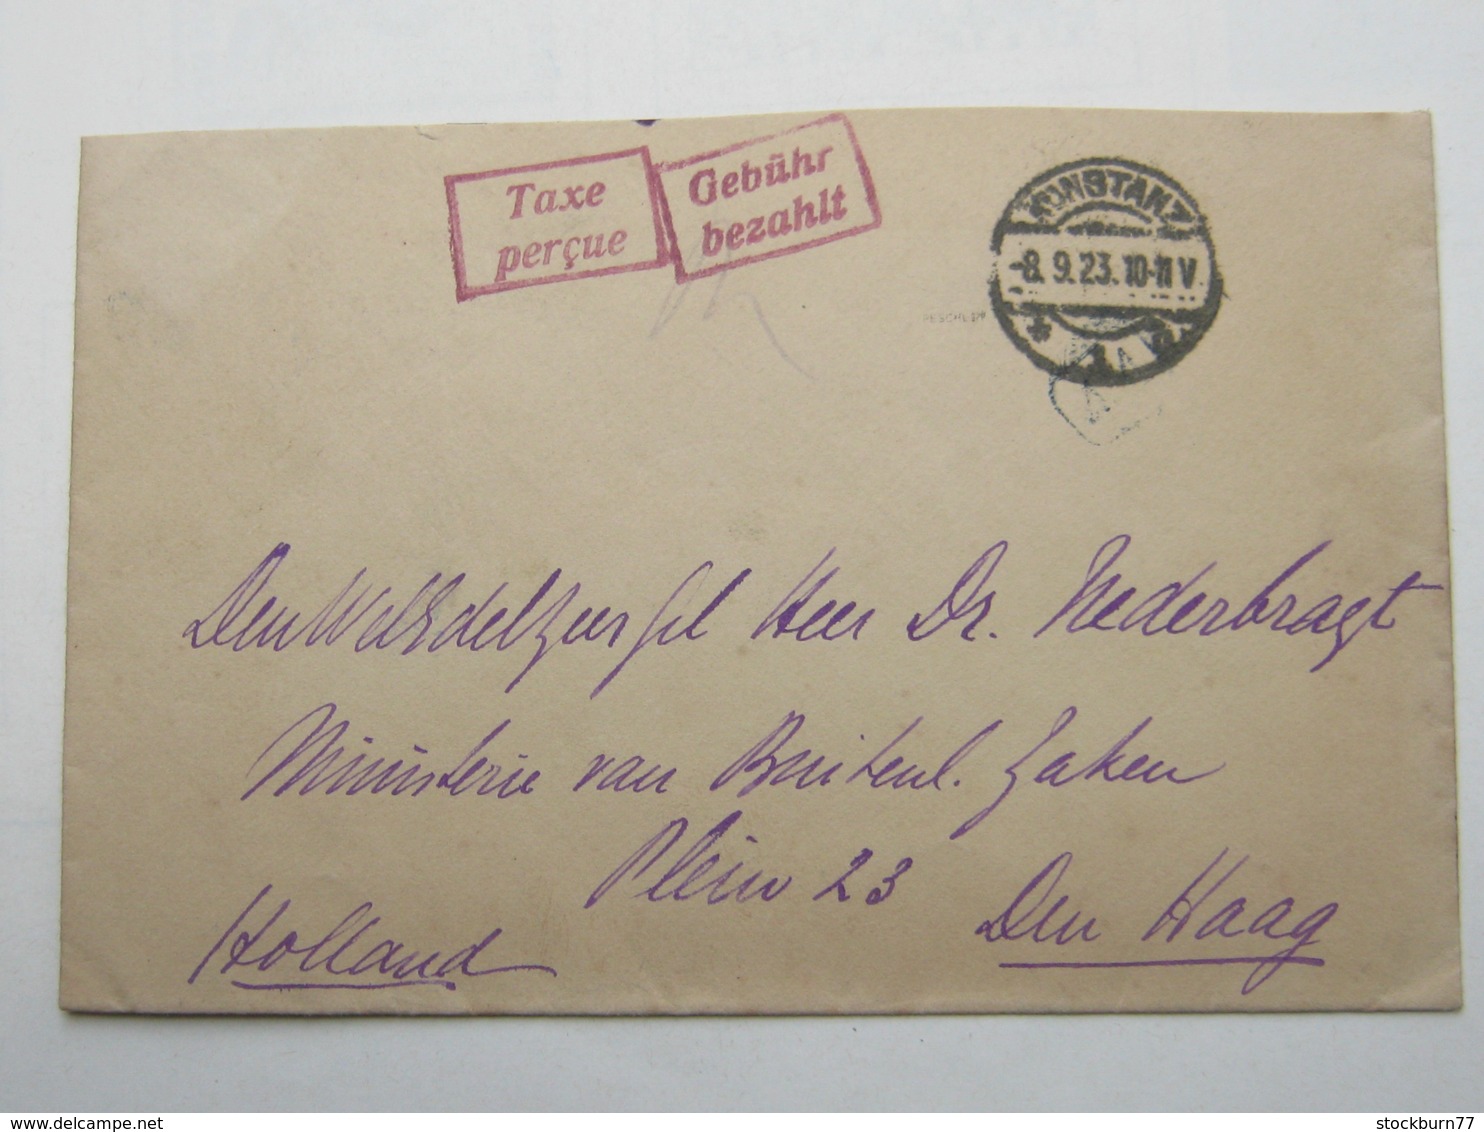 Taxe
perçue
Gebühr
bezahlt
KONSTANZ
-8.9.23.10-11 V
* 1
Den WelEdelZeer Gel Heer Dr. Nederbragt
Ministerie van Buitenl. Zaken
Plein 23
Den Haag
Holland
delcampe.net
stockburn77